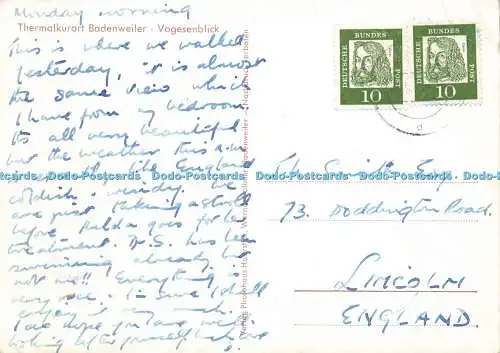 Monday morning
Thermalkurort Badenweiler - Vogesenblick
This is where we walked
yesterday, it is almost
the same view which
I have from my bedroom.
It's all very beautiful
but the weather this a.m.
like England
coldish & windy. We
are just taking a stroll
before Hilda goes for her
treatment. has been
swimming already but
not me!! Everything is
very nice. I'm sure I shall
enjoy it very much.
I do hope you are well
looking after yourself
Nachdruck verboten
DEUTSCHE BUNDES POST
10
DEUTSCHE BUNDES POST
10
Smith Esq
73, Doddington Road.
LINCOLN
ENGLAND.
Dodo-Postcards Dodo-Postcards Dodo-Postcards Dodo-Postcards Dodo-Postcards